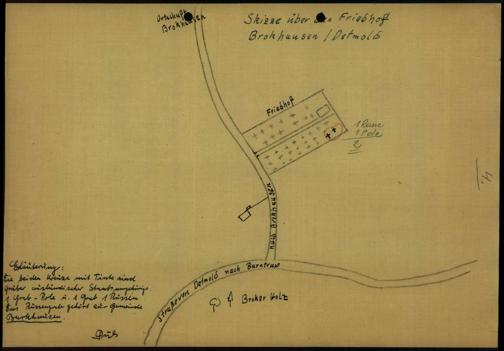 Ortschaft
Brokhausen
Skizze über den Friedhof
Brokhausen / Detmold
Friedhof
1 Russe
1 Pole
2
4.
nach Brokhausen
Straße von Detmold nach Barntrup
Broker Holz
Erläuterung:
Die beiden Kreuze mit Tinte sind
Gräber ausländischer Staatsangehörg.
1 Grab - Pole u. 1 Grab 1 Russen
Das Russengrab gehört zur Gemeinde